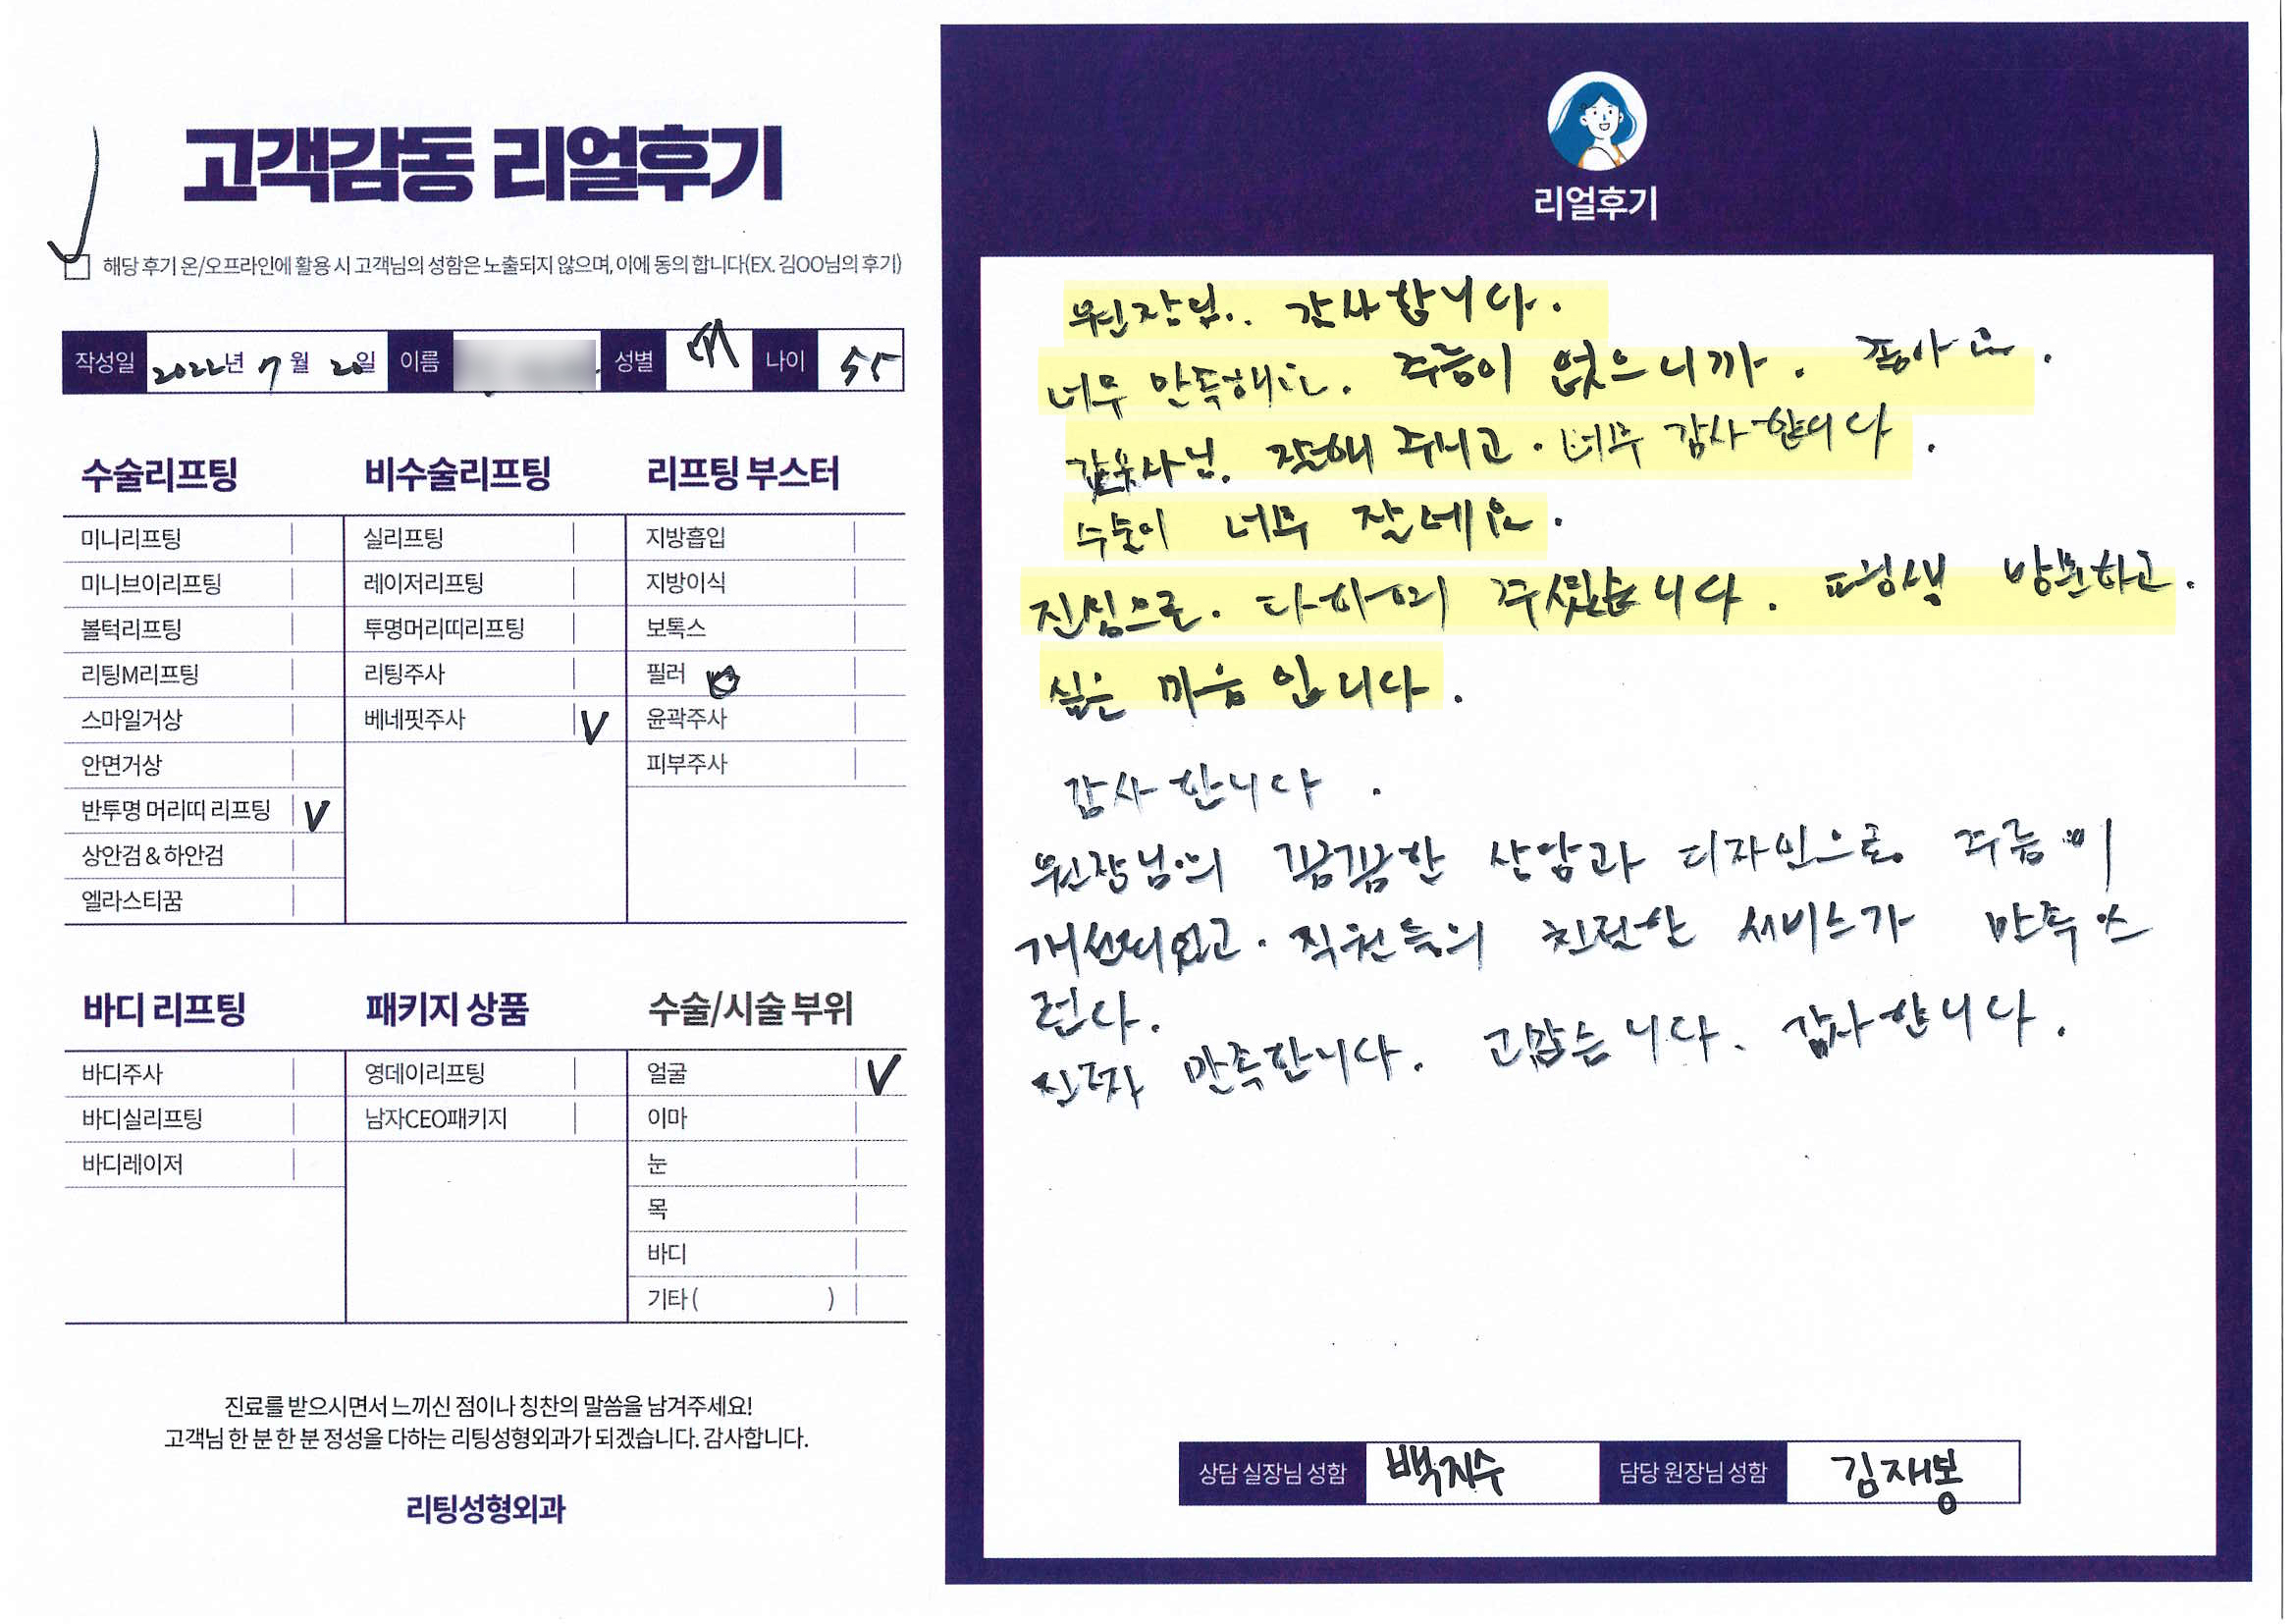 고객감동 리얼후기
해당 후기 온/오프라인에 활용 시 고객님의 성함은 노출되지 않으며, 이에 동의 합니다(EX. 김OO님의 후기)
작성일 2022년 7월 20일 이름 성별 여 나이 55
수술리프팅
미니리프팅
미니브이리프팅
볼턱리프팅
리팅M리프팅
스마일거상
안면거상
반투명 머리띠 리프팅 V
상안검 & 하안검
엘라스티꿈
비수술리프팅
실리프팅
레이저리프팅
투명머리띠리프팅
리팅주사
베네핏주사 V
리프팅 부스터
지방흡입
지방이식
보톡스
필러
윤곽주사
피부주사
바디 리프팅
바디주사
바디실리프팅
바디레이저
패키지 상품
영데이리프팅
남자CEO패키지
수술/시술 부위
얼굴 V
이마
눈
목
바디
기타 ( )
진료를 받으시면서 느끼신 점이나 칭찬의 말씀을 남겨주세요!
고객님 한 분 한 분 정성을 다하는 리팅성형외과가 되겠습니다. 감사합니다.
리팅성형외과
리얼후기
원장님.. 감사합니다.
너무 만족해요. 주름이 없으니까. 좋아요.
잘해 주시고. 너무 감사합니다.
수술이 너무 잘네요.
진심으로. 주셨습니다. 평생 방문하고.
싶은 마음 입니다.
감사합니다.
원장님의 꼼꼼한 상담과 디자인으로 주름이
개선되었고. 직원들의 친절한 서비스가 만족스
런다.
진짜 만족합니다. 고맙습니다. 감사합니다.
상담 실장님 성함 백지수 담당 원장님 성함 김재봉